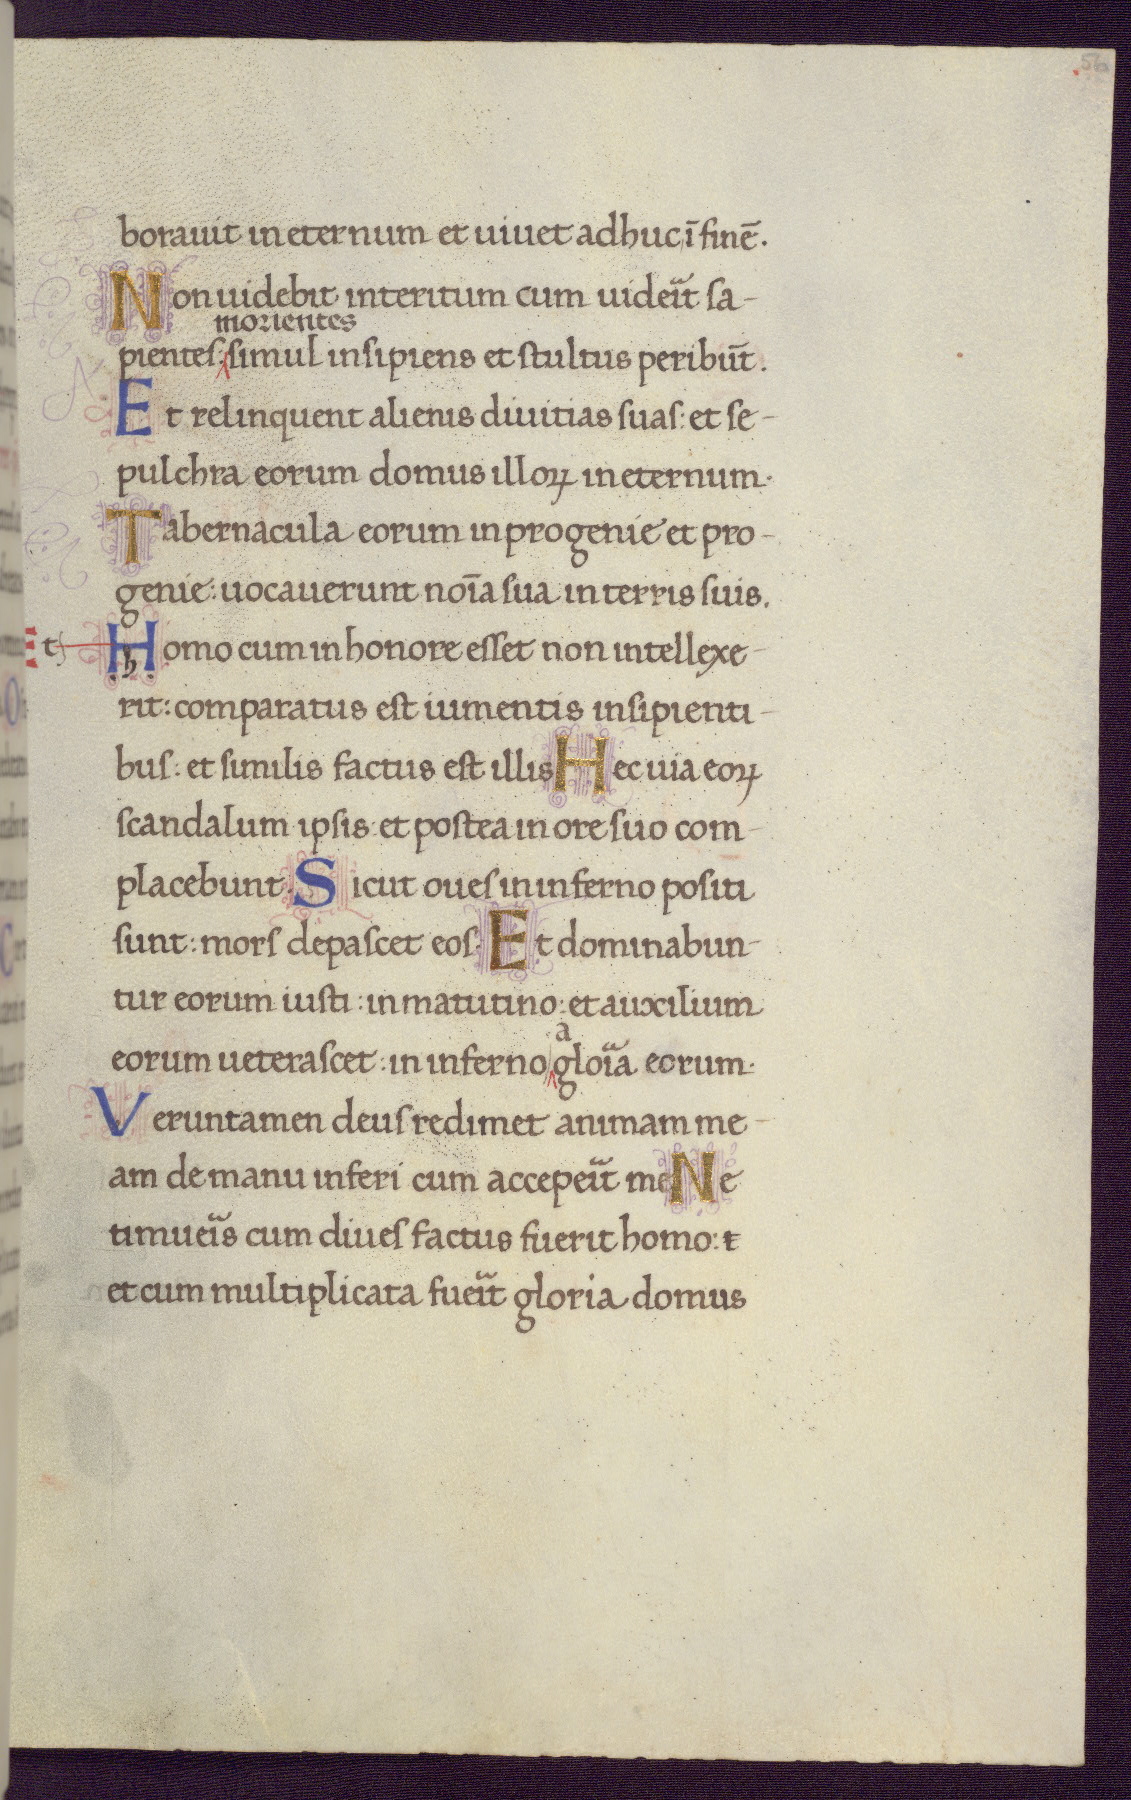 borauit in eternum et uiuet adhuc ī finē.
Non uidebit interitum cum uideūt sa-
morientes
pientes: simul insipiens et stultus peribūt.
Et relinquent alienis diuitias suas: et se-
pulchra eorum domus illoꝝ in eternum.
Tabernacula eorum in progenie et pro-
genie: uocauerunt noīa sua in terris suis.
Et Homo cum in honore esset non intellexe-
rit: comparatus est iumentis insipienti-
bus: et similis factus est illis Hec uia eoꝝ
scandalum ipsis: et postea in ore suo com-
placebunt. Sicut oues in inferno positi
sunt: mors depascet eos. Et dominabun-
tur eorum iusti: in matutino: et auxilium
a
eorum ueterascet: in inferno gloīa eorum.
Veruntamen deus redimet animam me-
am de manu inferi cum accepeīt me Ne
timueīs cum diues factus fuerit homo: t
et cum multiplicata fueīt gloria domus